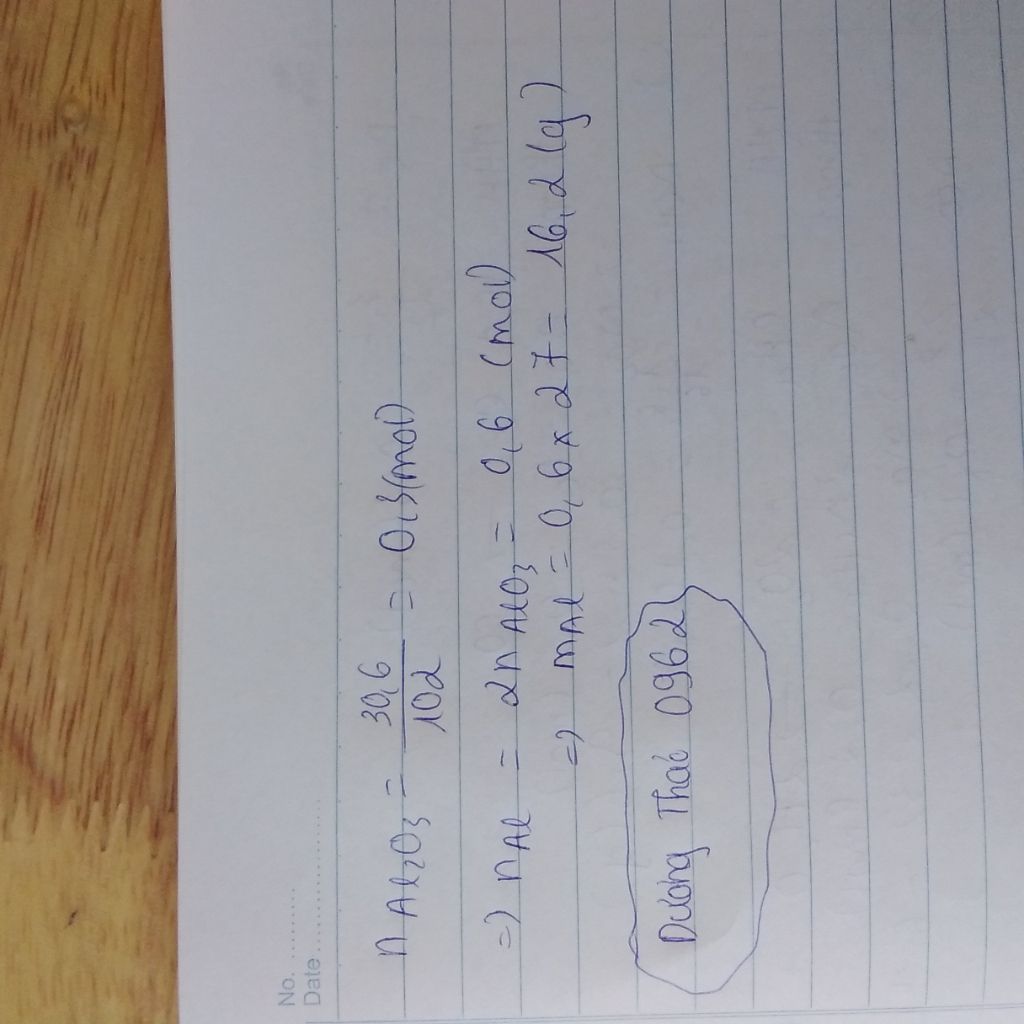 No. ............
Date ........................
n Al₂O₃ = 30,6/102 = 0,3(mol)
=) n Al = 2n AlO₃ = 0,6 (mol)
=) mAl = 0,6 x 27 = 16,2 (g)
Dương Thác 0962